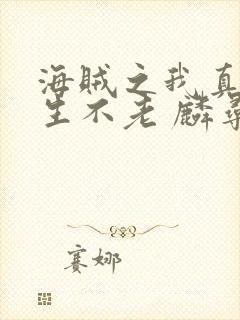 海贼之我真
生不老麟
赛娜